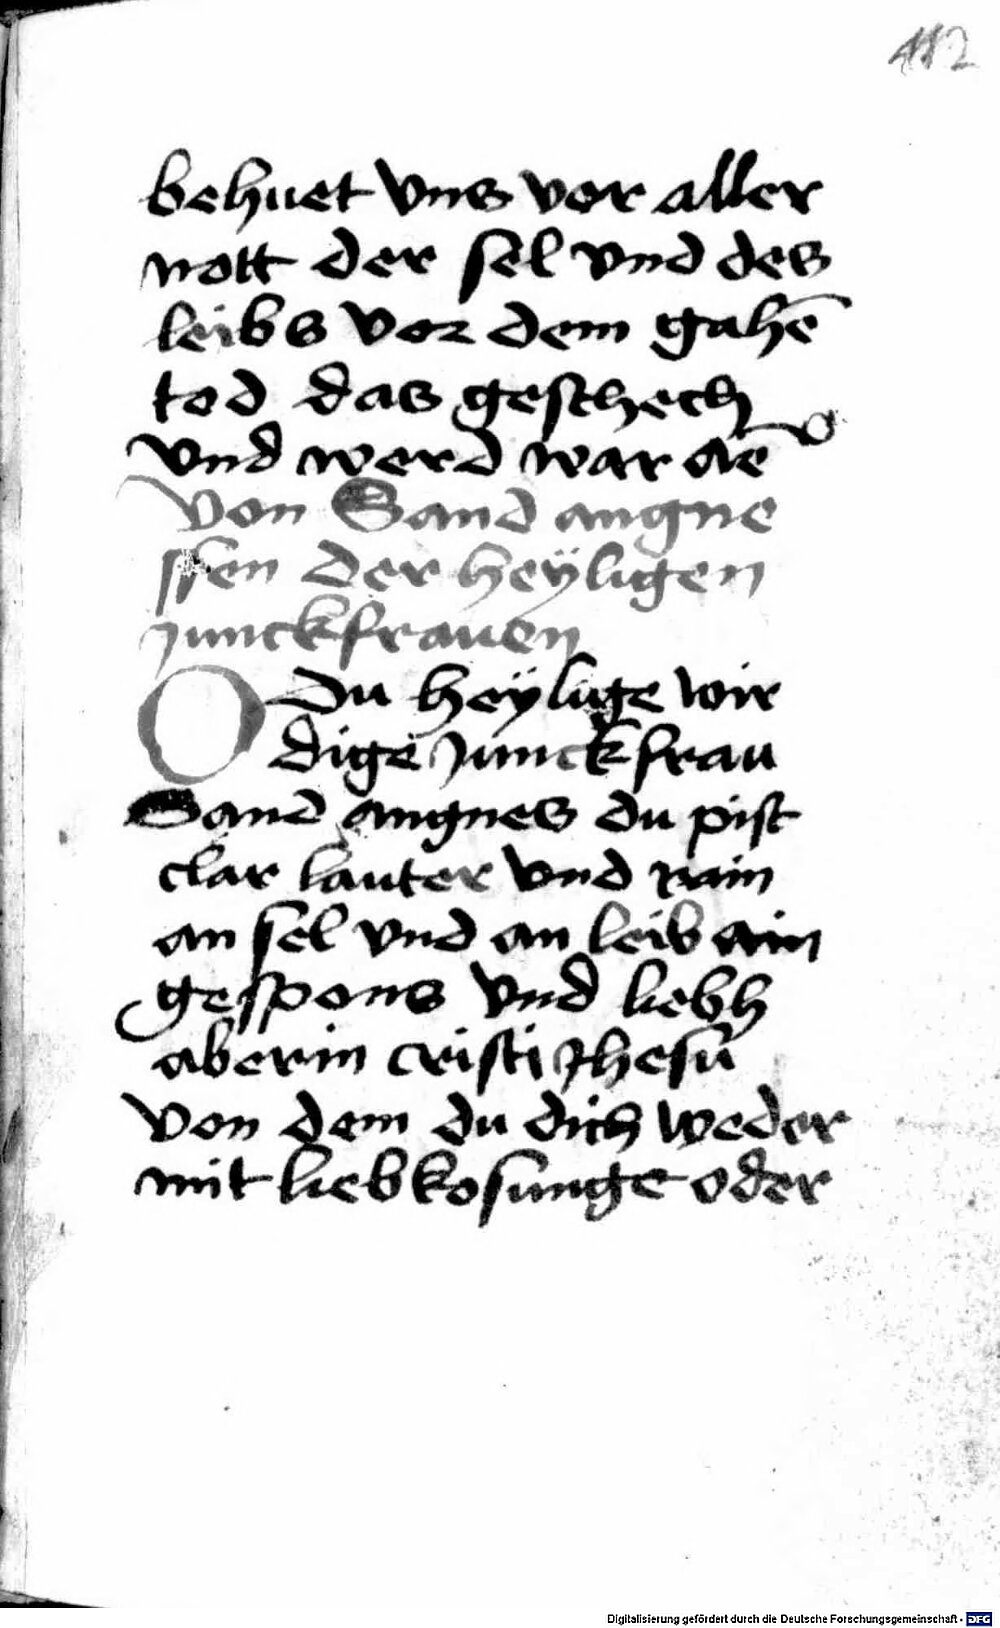 112
behuet vns vor aller
nott der sel vnd des
leibs vor dem gahē
tod das geschech
vnd werd war aē
Von Sand angne
ssen der heÿligen
junckfrauen
O Du heÿlige wir
dige junckfrau
Sand angnes du pist
clar lauter vnd rain
an sel vnd an leib ain
gespons vnd liebh
aberin cristi Jhesū
Von dem du dich weder
mit liebkosunge oder
Digitalisierung gefördert durch die Deutsche Forschungsgemeinschaft - DFG